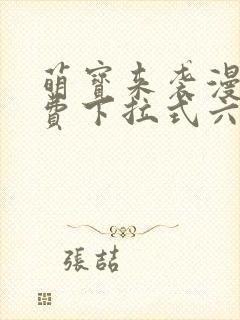 萌寶來袭漫
費下拉式六
張喆